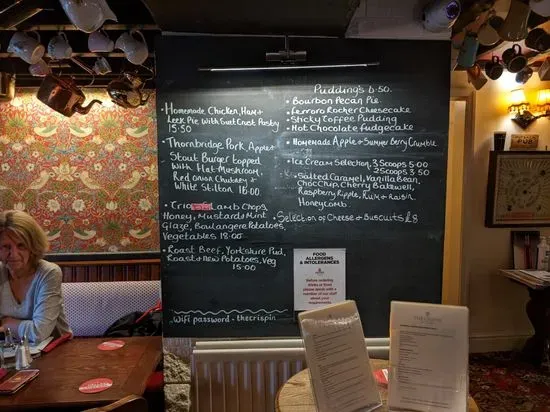 Homemade Chicken, Ham &
Leek Pie with Suet Crust Pastry
15:50
Thornbridge Pork, Apple &
Stout Burger topped
with Flat Mushroom,
Red Onion Chutney &
White Stilton 16:00
Trio Lamb Chops,
Honey, Mustard & Mint
Glaze, Boulangere Potatoes,
Vegetables 18.00
Roast Beef, Yorkshire Pud,
Roast & new Potatoes, Veg
15:00
Wifi password - thecrispin
Pudding's 6.50.
Bourbon Pecan Pie
Ferrero Rocher Cheesecake
Sticky Coffee Pudding
Hot Chocolate fudgecake
Homemade Apple & Summer Berry Crumble
Ice Cream Selection, 3 Scoops 5.00
2 Scoops 3.50
Salted Caramel, Vanilla Bean,
Choc Chip, Cherry Bakewell,
Raspberry Ripple, Rum & Raisin
Honeycomb.
Selection of Cheese & Biscuits £8
FOOD
ALLERGENS &
INTOLERANCES
Before ordering
drinks or food
please speak with a
member of our staff
about your
requirements
PUB